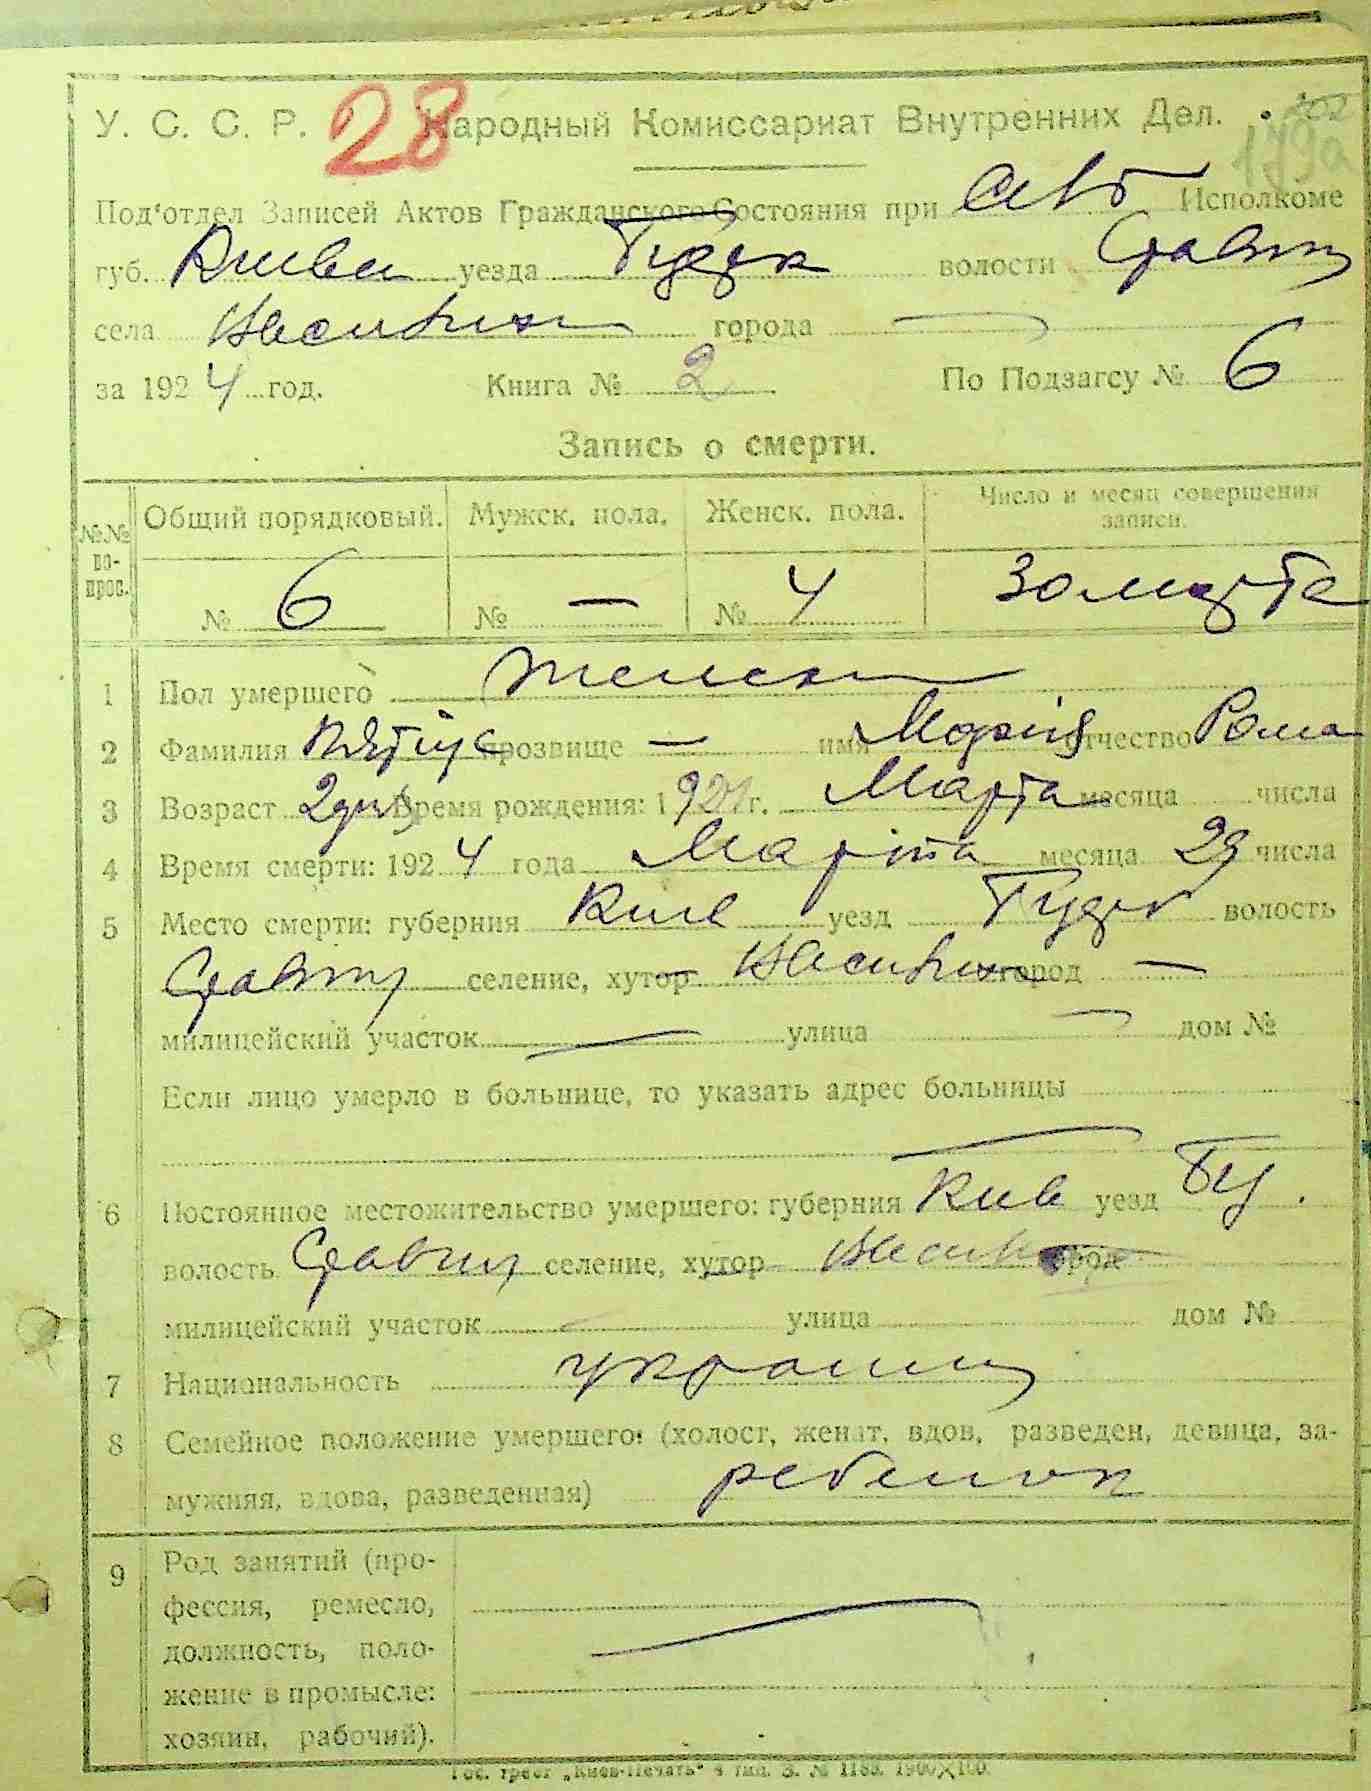 У. С. С. Р. 28 Народный Комиссариат Внутренних Дел.
179а
Под'отдел Записей Актов Гражданского Состояния при Исполкоме
губ. уезда волости
села города —
за 1924 год. Книга № 2 По Подзагсу № 6
Запись о смерти.
№№ во-прос. Общий порядковый. Мужск. пола. Женск. пола. Число и месяц совершения записи.
№ 6 № — № 4 30 марта
1 Пол умершего
2 Фамилия прозвище — имя Марія отчество Рома
3 Возраст 2 дня Время рождения: 1924 г. Марта месяца числа
4 Время смерти: 1924 года Марта месяца 29 числа
5 Место смерти: губерния Киев уезд волость
селение, хутор город —
милицейский участок — улица — дом №
Если лицо умерло в больнице, то указать адрес больницы
—
6 Постоянное местожительство умершего: губерния Киев уезд
волость селение, хутор город
милицейский участок улица дом №
7 Национальность
8 Семейное положение умершего: (холост, женат, вдов, разведен, девица, за-
мужняя, вдова, разведенная) ребенок
9 Род занятий (про-
фессия, ремесло,
должность, поло- —
жение в промысле:
хозяин, рабочий).
Гос. трест „Киев-Печать" 4 тип. З. № 1183. 1900×100.